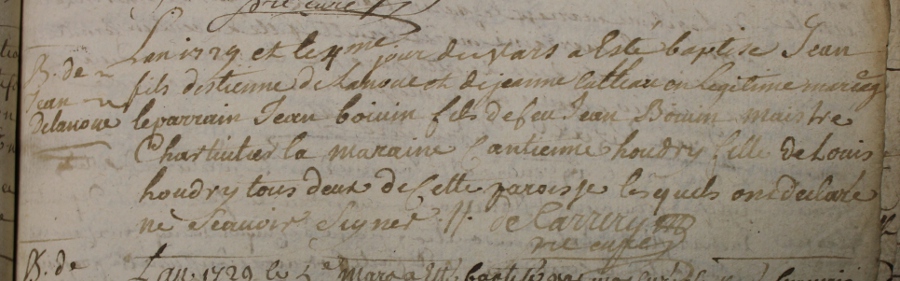 pre curé
L'an 1729 et le 4me jour de Mars a Esté baptisé Jean
B. de
Jean
Delanoue
fils destienne delanoue et de jeanne Cutteau en legitime mariage
le parrain Jean boiuin fils de feu Jean Boiuin maistre
Chartiutier la maraine Cantienne houdry fille de Louis
houdry tous deux de Cette paroisse lesquels ont declaré
ne Scauoir Signer. //. de Carrery
pre curé
B. de
L'an 1729 le 4e Mars a Esté baptisé par moy curé